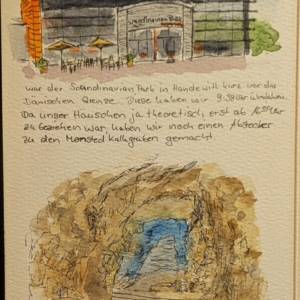 Scandinavian Park
war der Scandinavian Park in Handewitt kurz vor der
Dänischen Grenze. Diese haben wir 9:38 Uhr
Da unser Häuschen ja theoretisch erst ab 16:00 Uhr
zu beziehen war, haben wir noch einen Abstecher
zu den Mønsted Kalkgruben gemacht.